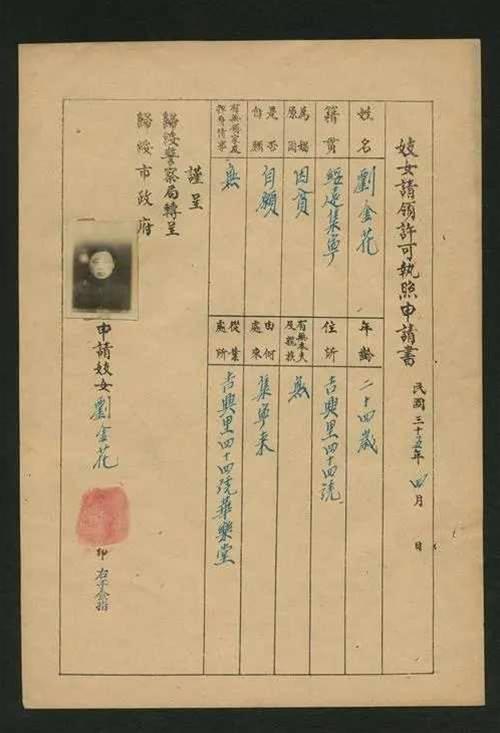 妓女請領許可執照申請書
民國三十五年 四月 日
姓名 劉金花
年齡 二十四歲
籍貫 綏遠集寧
住所 吉興里四十四號
為娼原因 因貧
有無本夫及親族 無
是否自願 自願
由何處來 集寧来
無
從業處所 吉興里四十四號華樂堂
謹呈
歸綏警察局轉呈
歸綏市政府
申請妓女 劉金花
印 右手食指